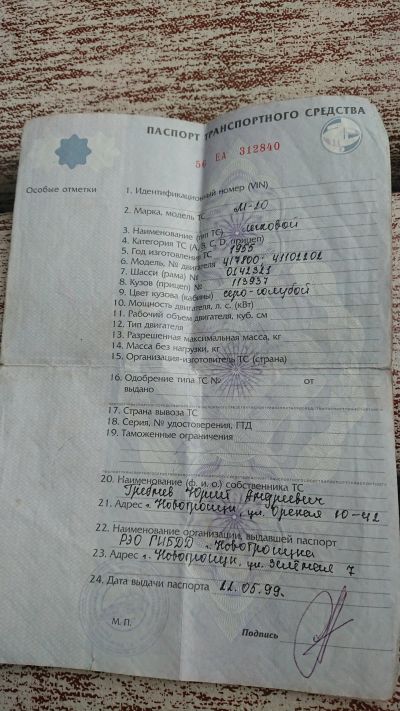 ПАСПОРТ ТРАНСПОРТНОГО СРЕДСТВА
56 ЕА 312840
Особые отметки
1. Идентификационный номер (VIN)
2. Марка, модель ТС М-20
3. Наименование (тип ТС) легковой
4. Категория ТС (А, В, С, D, прицеп)
5. Год изготовления ТС 1955
6. Модель, № двигателя 417800-41102102
7. Шасси (рама) № 0142321
8. Кузов (прицеп) № 113937
9. Цвет кузова (кабины) серо-голубой
10. Мощность двигателя, л. с. (кВт)
11. Рабочий объем двигателя, куб. см
12. Тип двигателя
13. Разрешенная максимальная масса, кг
14. Масса без нагрузки, кг
15. Организация-изготовитель ТС (страна)
16. Одобрение типа ТС № от
выдано
17. Страна вывоза ТС
18. Серия, № удостоверения, ГТД
19. Таможенные ограничения
20. Наименование (ф. и. о.) собственника ТС
Гребнев Юрий Андреевич
21. Адрес г. Новотроицк, ул. 10-42
22. Наименование организации, выдавшей паспорт
РЭО ГИБДД г. Новотроицка
23. Адрес г. Новотроицк, ул. Зелёная 7
24. Дата выдачи паспорта 11.05.99.
М. П.
Подпись